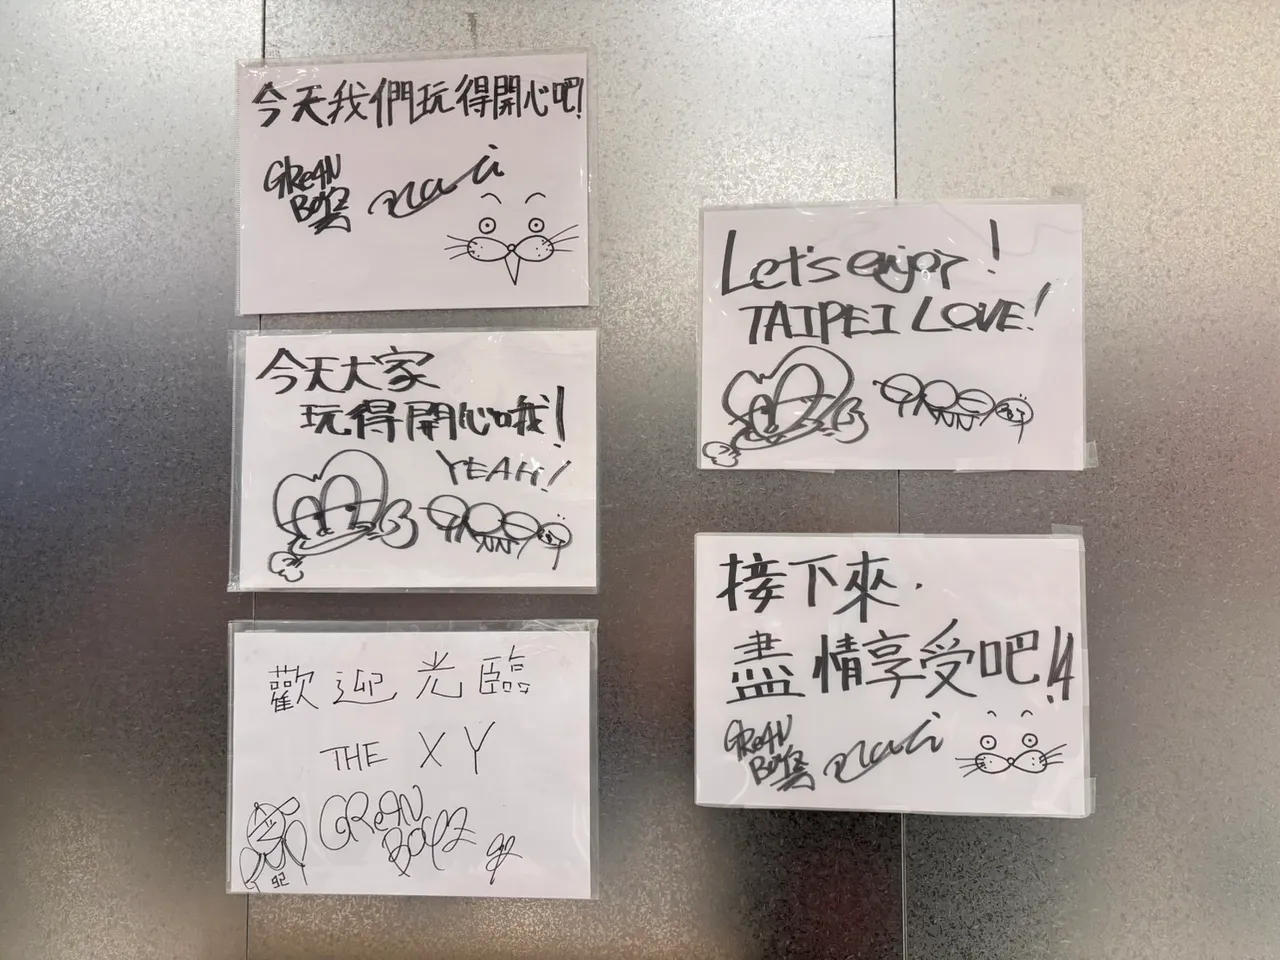 今天我們玩得開心吧!
GRe4N
BOYZ
navi
今天大家
玩得開心哦!
YEAH!
歡迎光臨
THE XY
GRe4N
BOYZ
92
92
Let's enjoy!
TAIPEI LOVE!
接下來.
盡情享受吧!!
GRe4N
BOYZ
navi